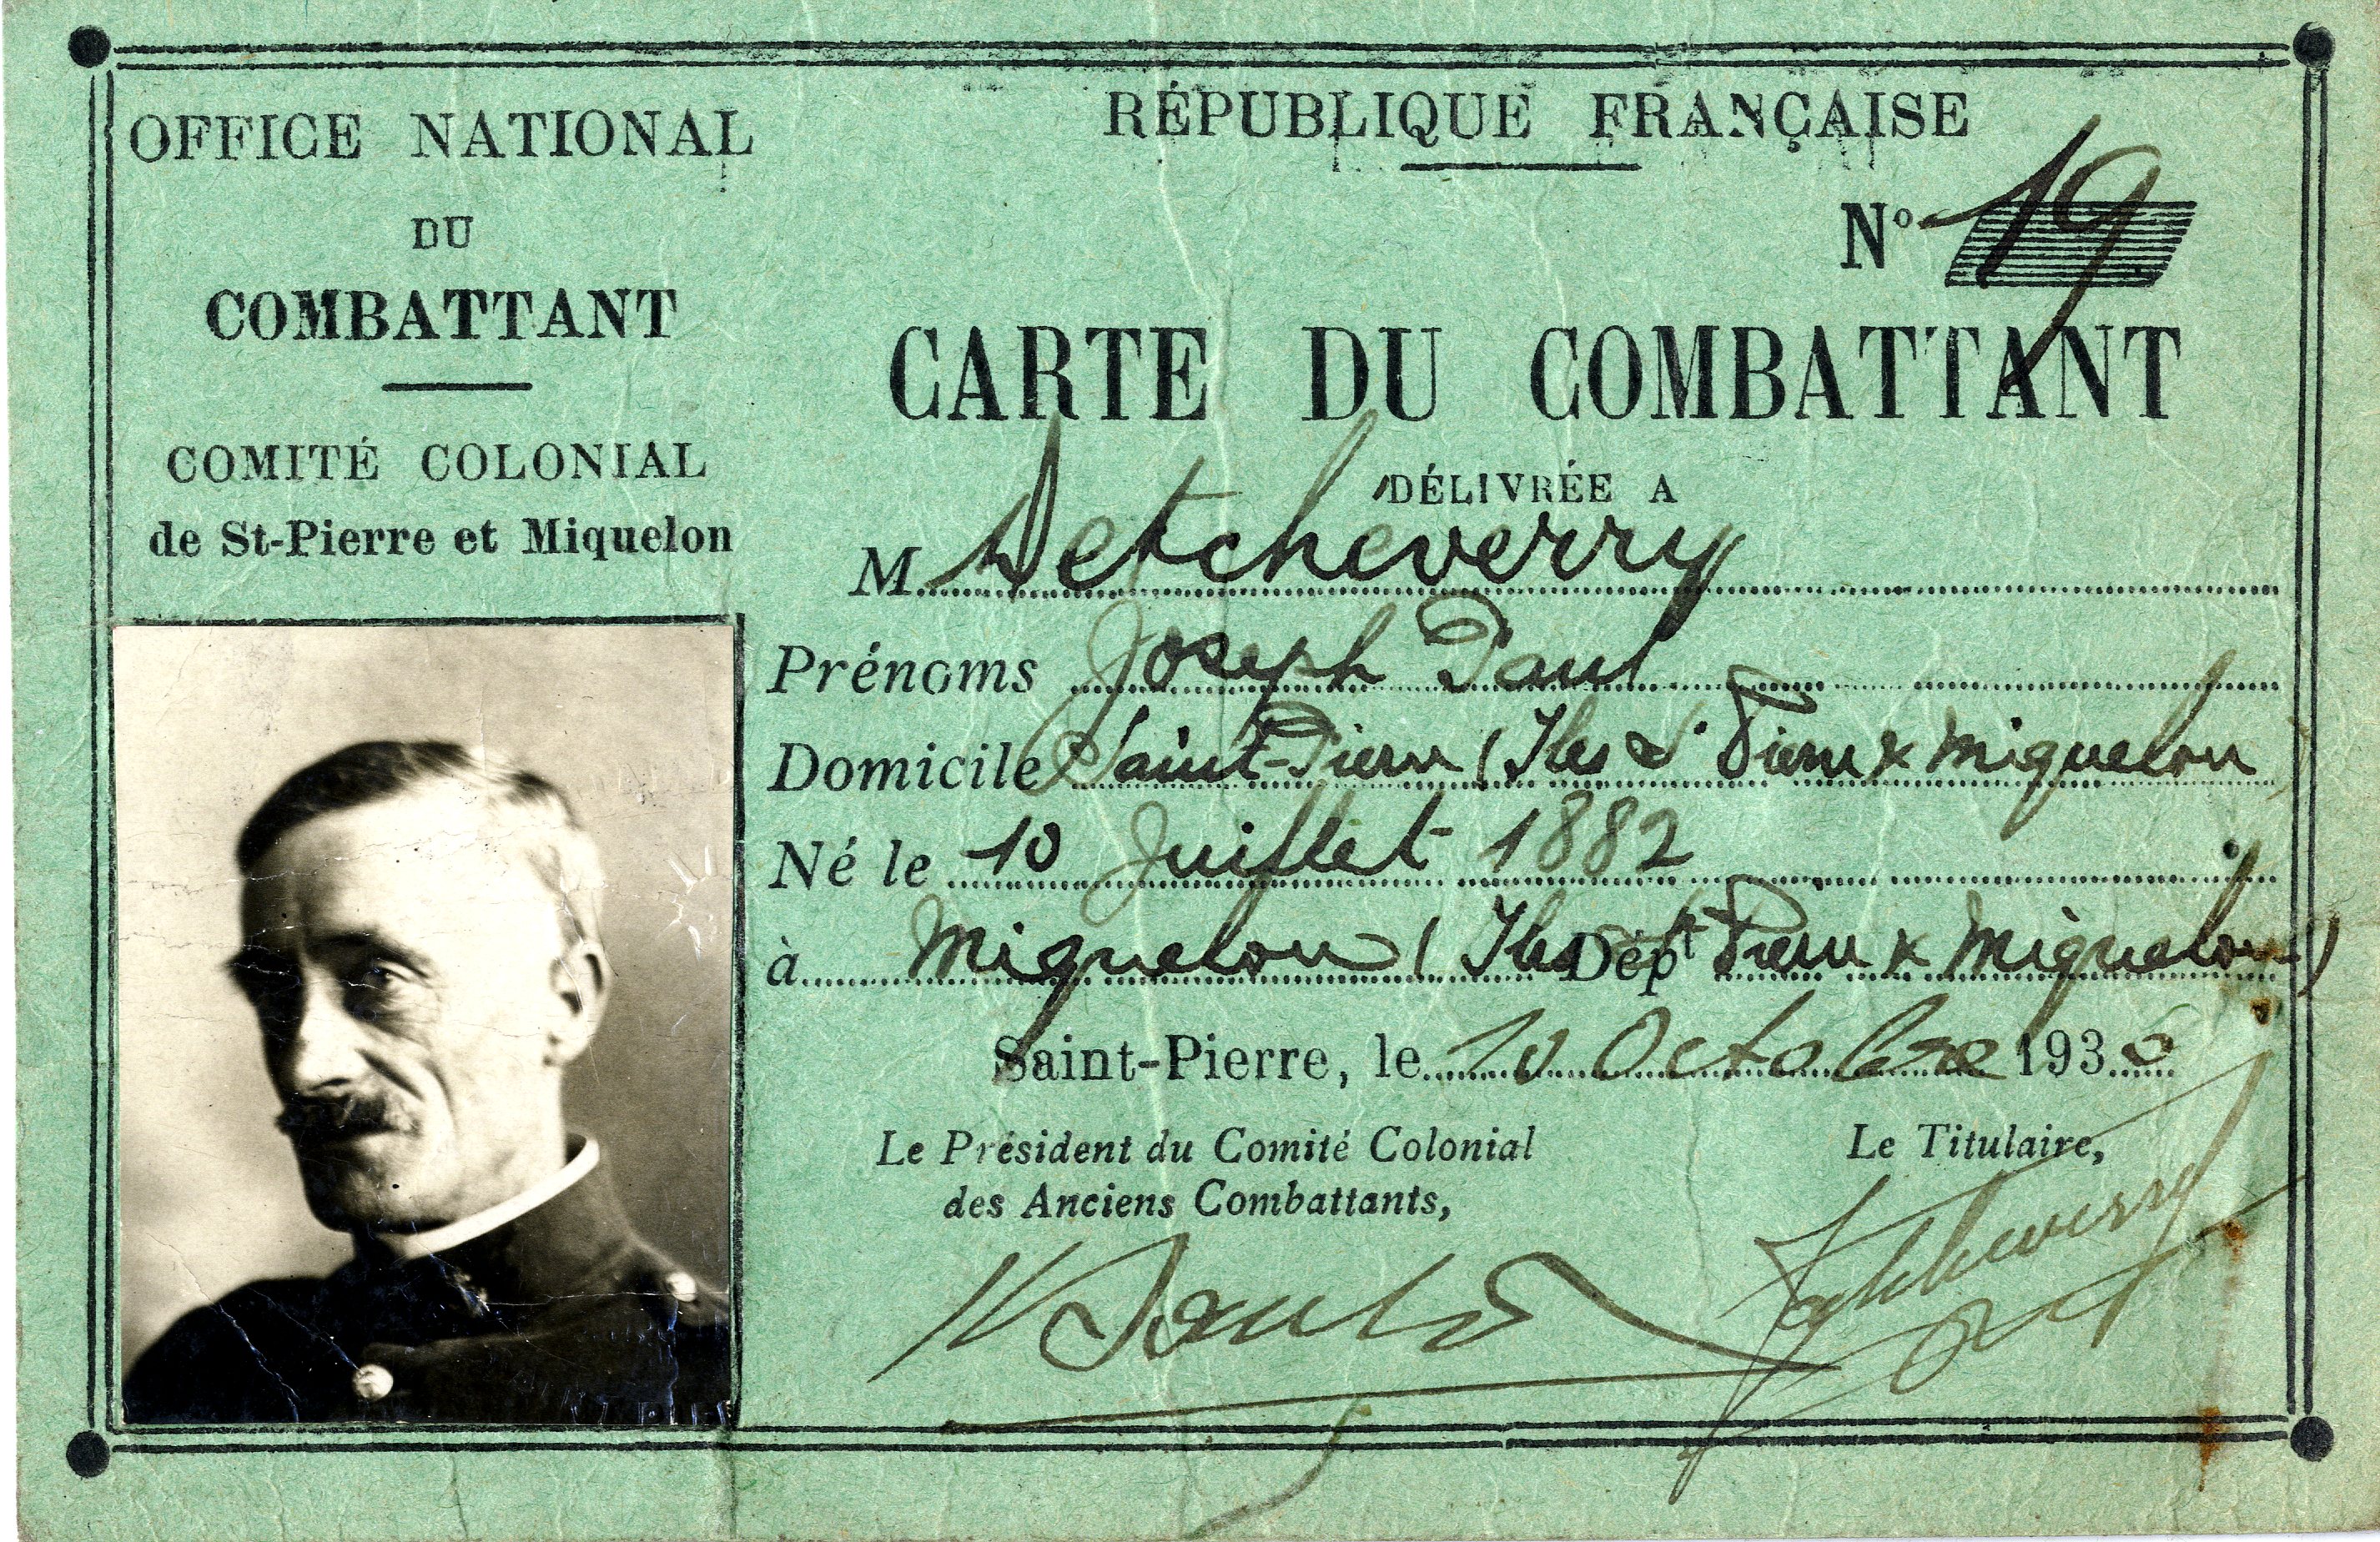 OFFICE NATIONAL
DU
COMBATTANT
COMITÉ COLONIAL
de St-Pierre et Miquelon
RÉPUBLIQUE FRANÇAISE
N° 19
CARTE DU COMBATTANT
DÉLIVRÉE A
M. Detcheverry
Prénoms Joseph Paul
Domicile Saint-Pierre (Iles St Pierre & Miquelon)
Né le 10 Juillet 1882
à Miquelon (Iles St Dépt Pierre & Miquelon)
Saint-Pierre, le 20 Octobre 193
Le Président du Comité Colonial
des Anciens Combattants,
Le Titulaire,
Detcheverry